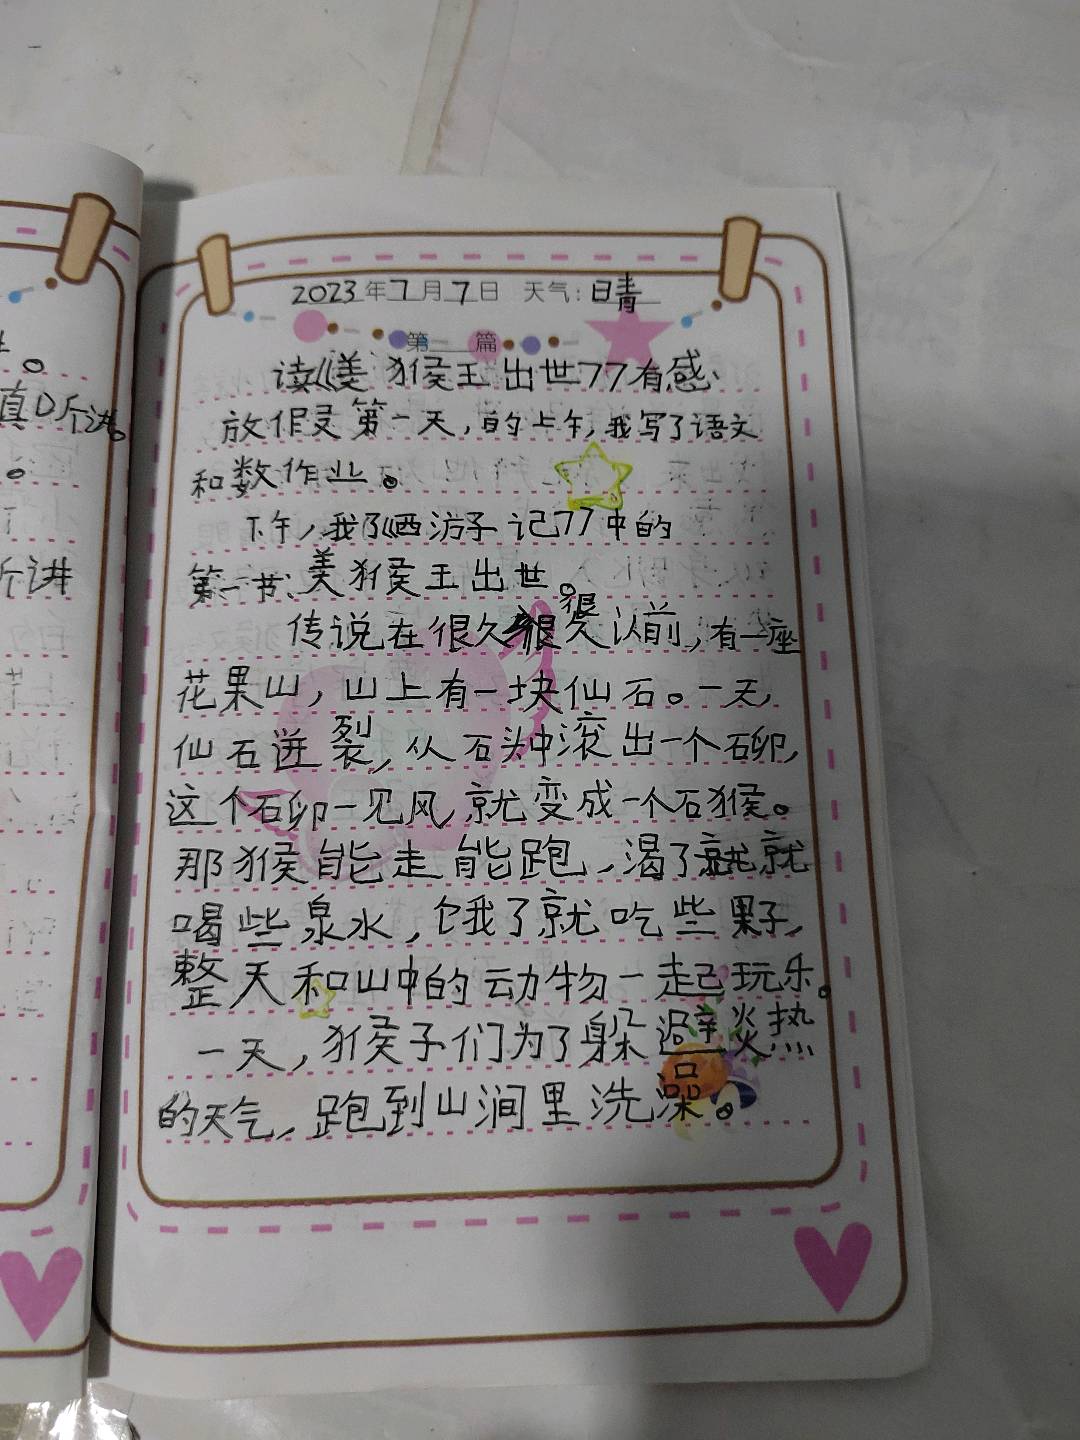 2023年7月7日 天气：晴
第 篇
读《美猴王出世》有感
放假第一天，的上午，我写了语文
和数作业。
下午，我了《西游子记》中的
第一节、美猴王出世。
传说在很久很久以前，有一座
花果山，山上有一块仙石。一天，
仙石迸裂，从石头中滚出一个石卵，
这个石卵一见风，就变成一个石猴。
那猴能走能跑，渴了就就
喝些泉水，饿了就吃些果子，
整天和山中的动物一起玩乐。
一天，猴子们为了躲避火热
的天气，跑到山涧里洗澡。
真
斤讲